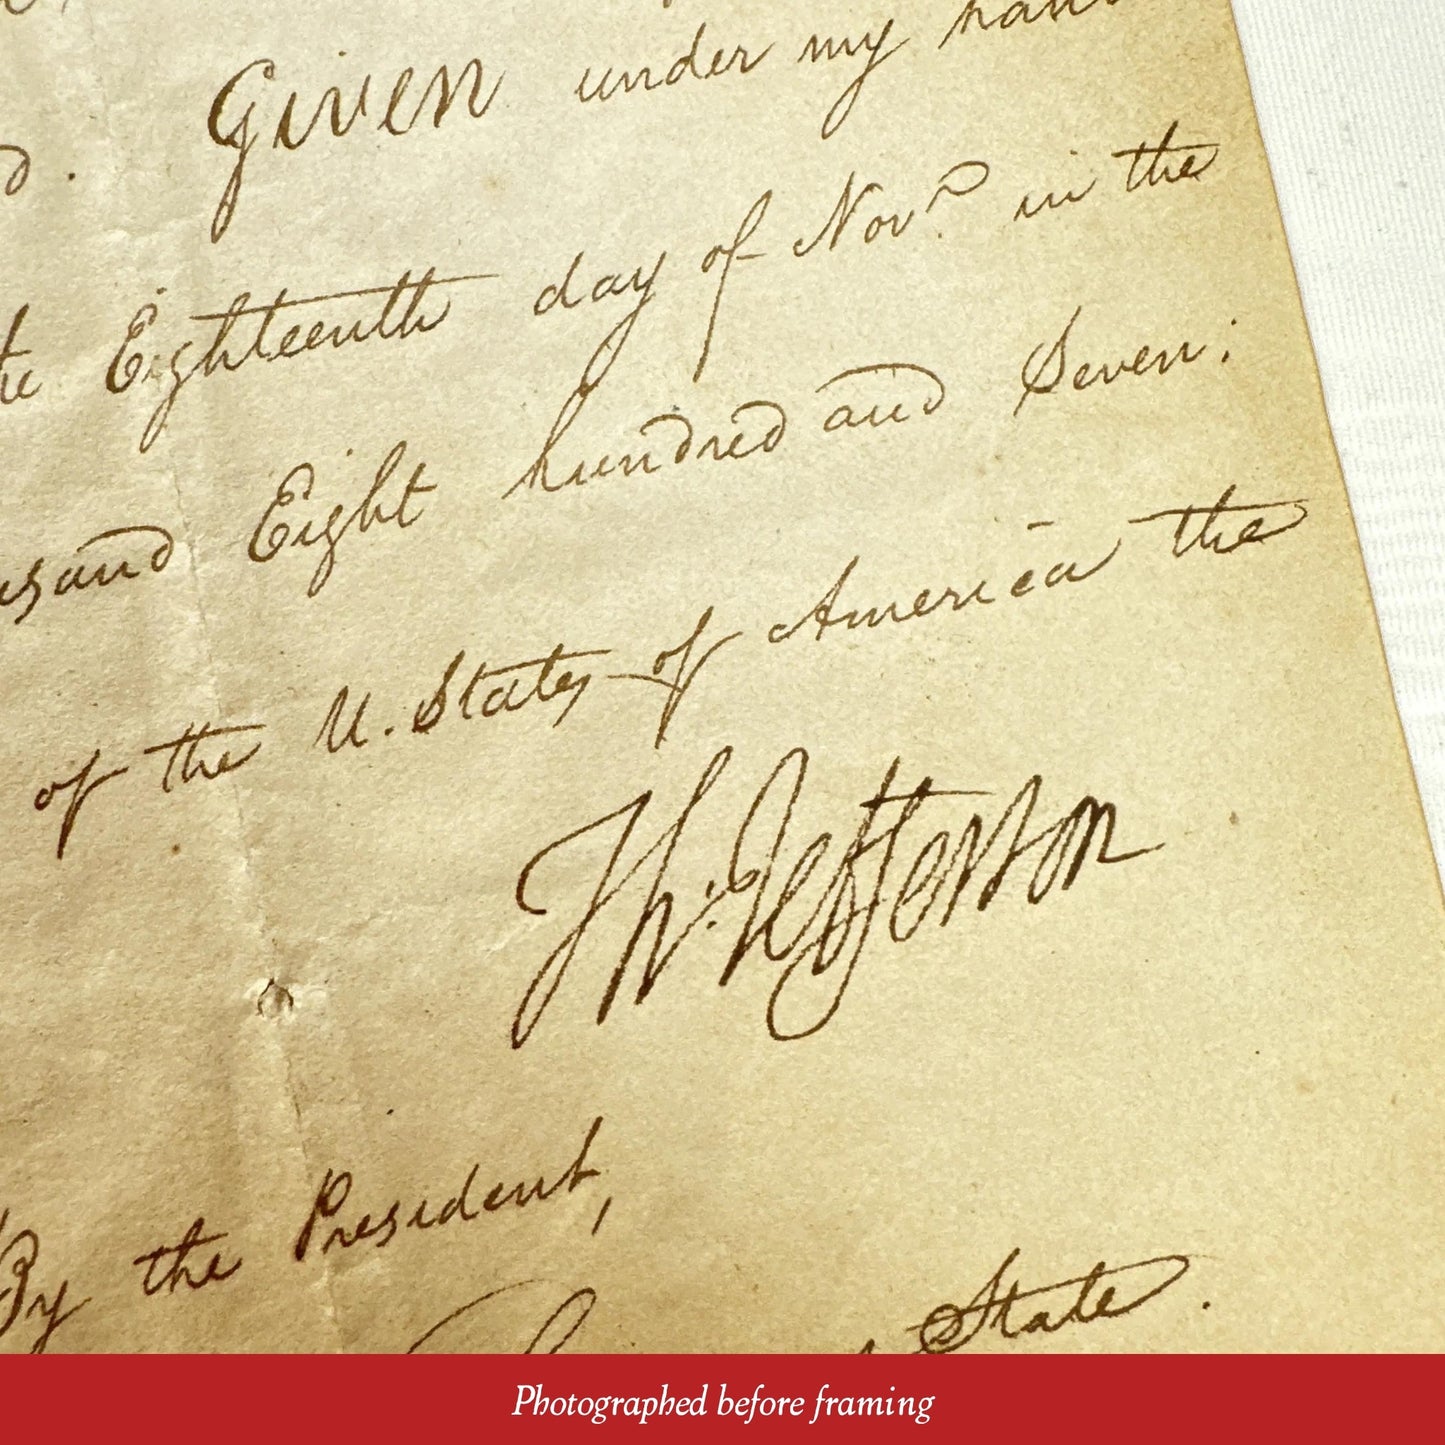 Given under my hand
d.
the Eighteenth day of Nov.r in the
usand Eight hundred and Seven:
of the U. States of America the
Th: Jefferson
By the President,
State.
Photographed before framing